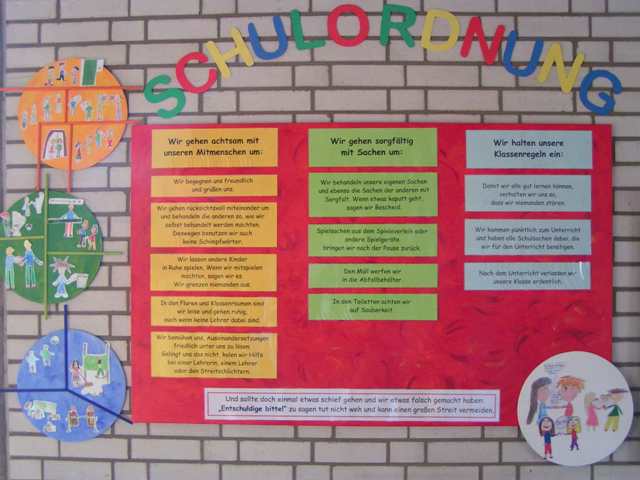 SCHULORDNUNG
Wir gehen achtsam mit
unseren Mitmenschen um:
Wir begegnen uns freundlich
und grüßen uns.
Wir gehen rücksichtsvoll miteinander um
und behandeln die anderen so, wie wir
selbst behandelt werden möchten.
Deswegen benutzen wir auch
keine Schimpfwörter.
Wir lassen andere Kinder
in Ruhe spielen. Wenn wir mitspielen
möchten, sagen wir es.
Wir grenzen niemanden aus.
In den Fluren und Klassenräumen sind
wir leise und gehen ruhig,
auch wenn keine Lehrer dabei sind.
Wir bemühen uns, Auseinandersetzungen
friedlich unter uns zu lösen.
Gelingt uns das nicht, holen wir Hilfe
bei einer Lehrerin, einem Lehrer
oder den Streitschlichtern.
Wir gehen sorgfältig
mit Sachen um:
Wir behandeln unsere eigenen Sachen
und ebenso die Sachen der anderen mit
Sorgfalt. Wenn etwas kaputt geht,
sagen wir Bescheid.
Spielsachen aus dem Spieleverleih oder
andere Spielgeräte
bringen wir nach der Pause zurück.
Den Müll werfen wir
in die Abfallbehälter.
In den Toiletten achten wir
auf Sauberkeit.
Wir halten unsere
Klassenregeln ein:
Damit wir alle gut lernen können,
verhalten wir uns so,
dass wir niemanden stören.
Wir kommen pünktlich zum Unterricht
und haben alle Schulsachen dabei, die
wir für den Unterricht benötigen.
Nach dem Unterricht verlassen wir
unsere Klasse ordentlich.
Und sollte doch einmal etwas schief gehen und wir etwas falsch gemacht haben:
„Entschuldige bitte!" zu sagen tut nicht weh und kann einen großen Streit vermeiden.